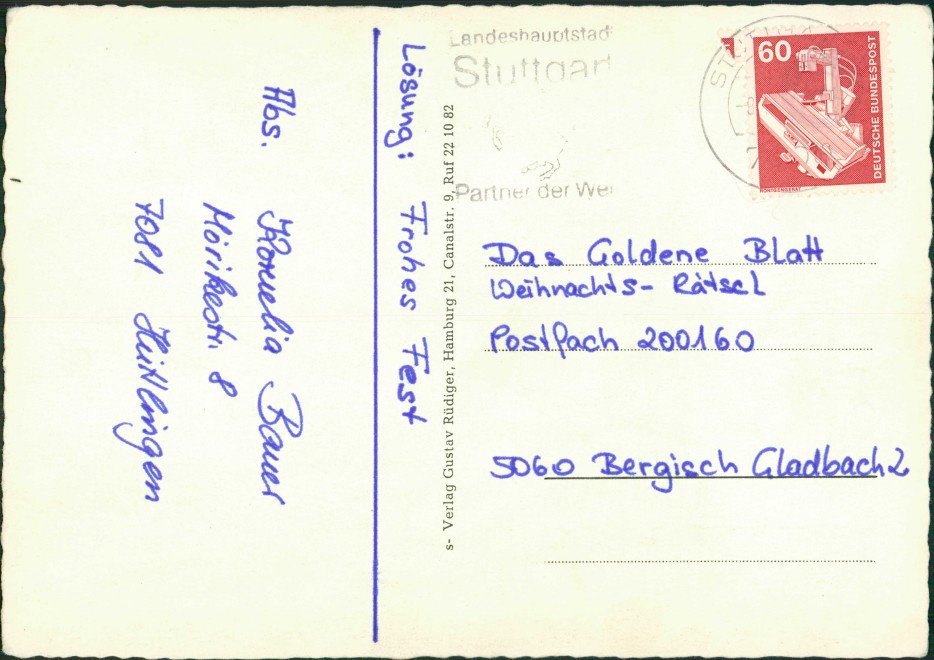 Landeshauptstad
Stuttgart
Partner der Wel
60
DEUTSCHE BUNDESPOST
RÖNTGENGERÄT
Lösung: Frohes Fest
Abs. Kornelia Bauer
Mörikestr. 8
7081 Hüttlingen
s- Verlag Gustav Rüdiger, Hamburg 21, Canalstr. 9, Ruf 22 10 82
Das Goldene Blatt
Weihnachts- Rätsel
Postfach 200160
5060 Bergisch Gladbach 2